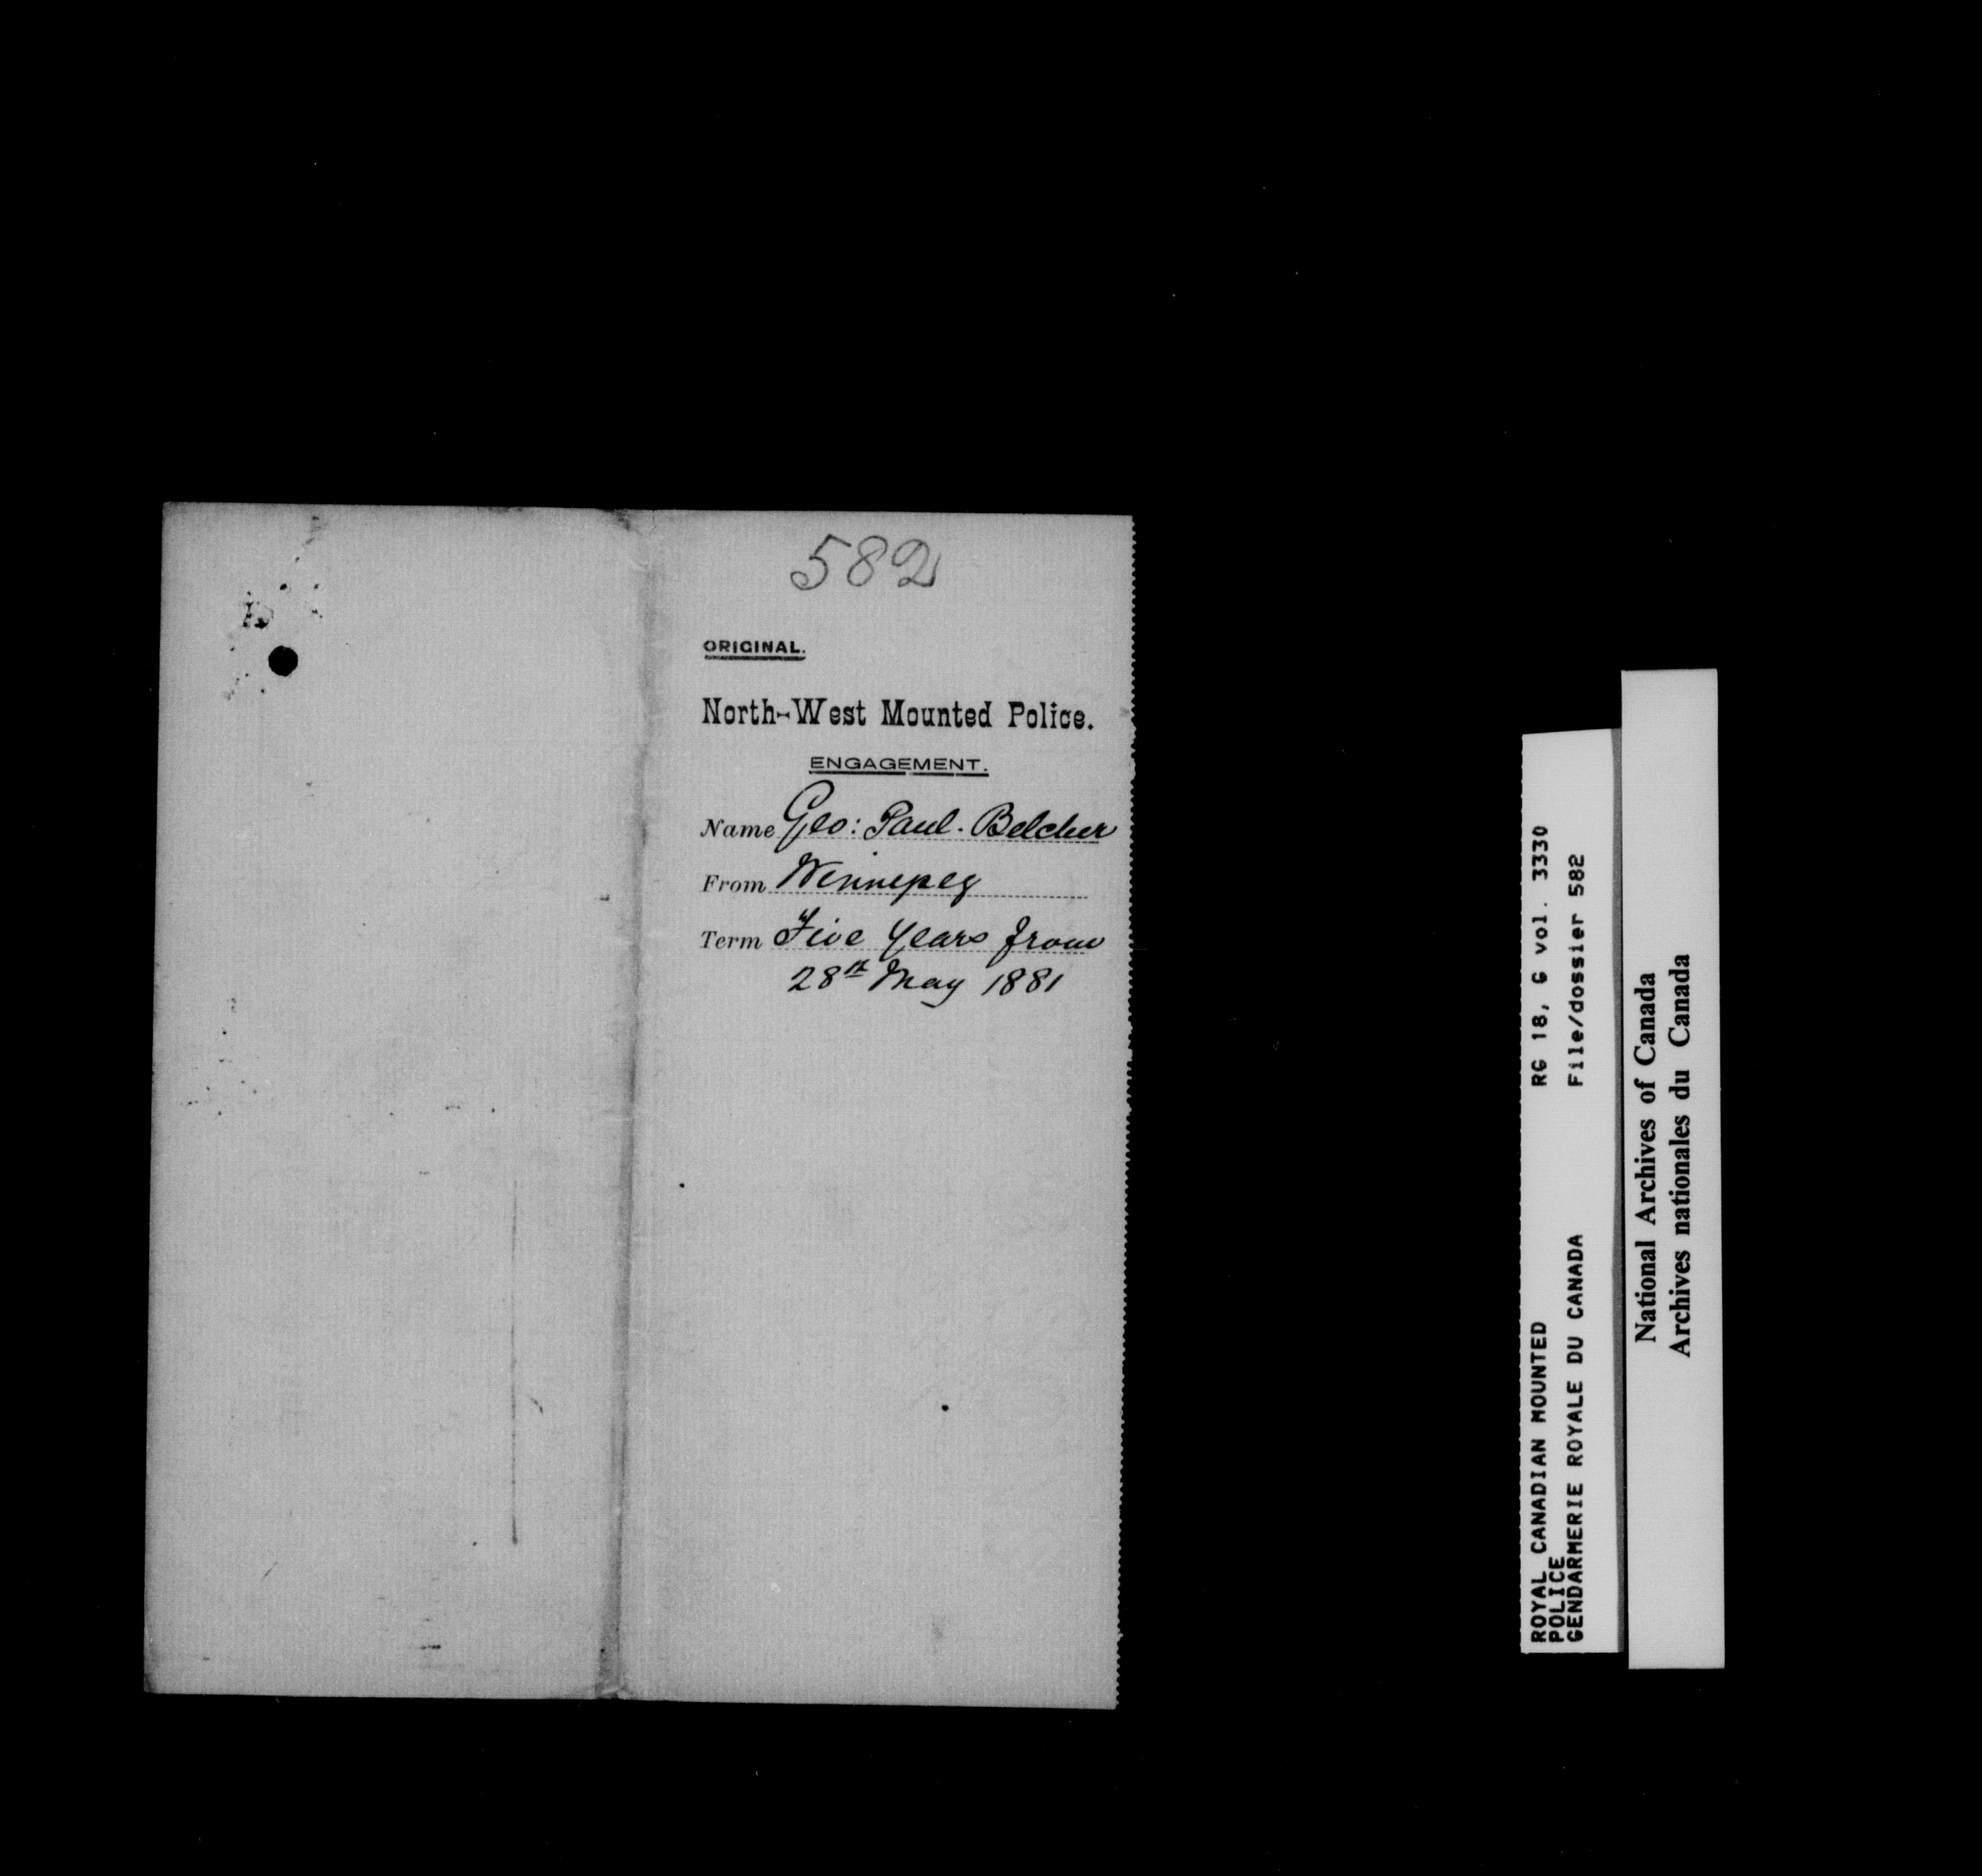 582
ORIGINAL.
North-West Mounted Police.
ENGAGEMENT.
Name Geo: Paul. Belcher
From Winnepeg
Term Five Years from
28th May 1881
ROYAL CANADIAN MOUNTED RG 18, G vol. 3330
POLICE
GENDARMERIE ROYALE DU CANADA File/dossier 582
National Archives of Canada
Archives nationales du Canada